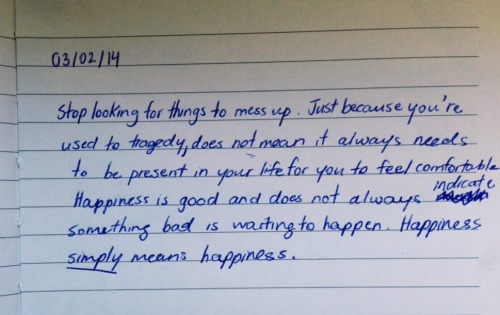 03/02/14
Stop looking for things to mess up. Just because you're
used to tragedy, does not mean it always needs
to be present in your life for you to feel comfortable
Happiness is good and does not always indicate
something bad is waiting to happen. Happiness
simply means happiness.